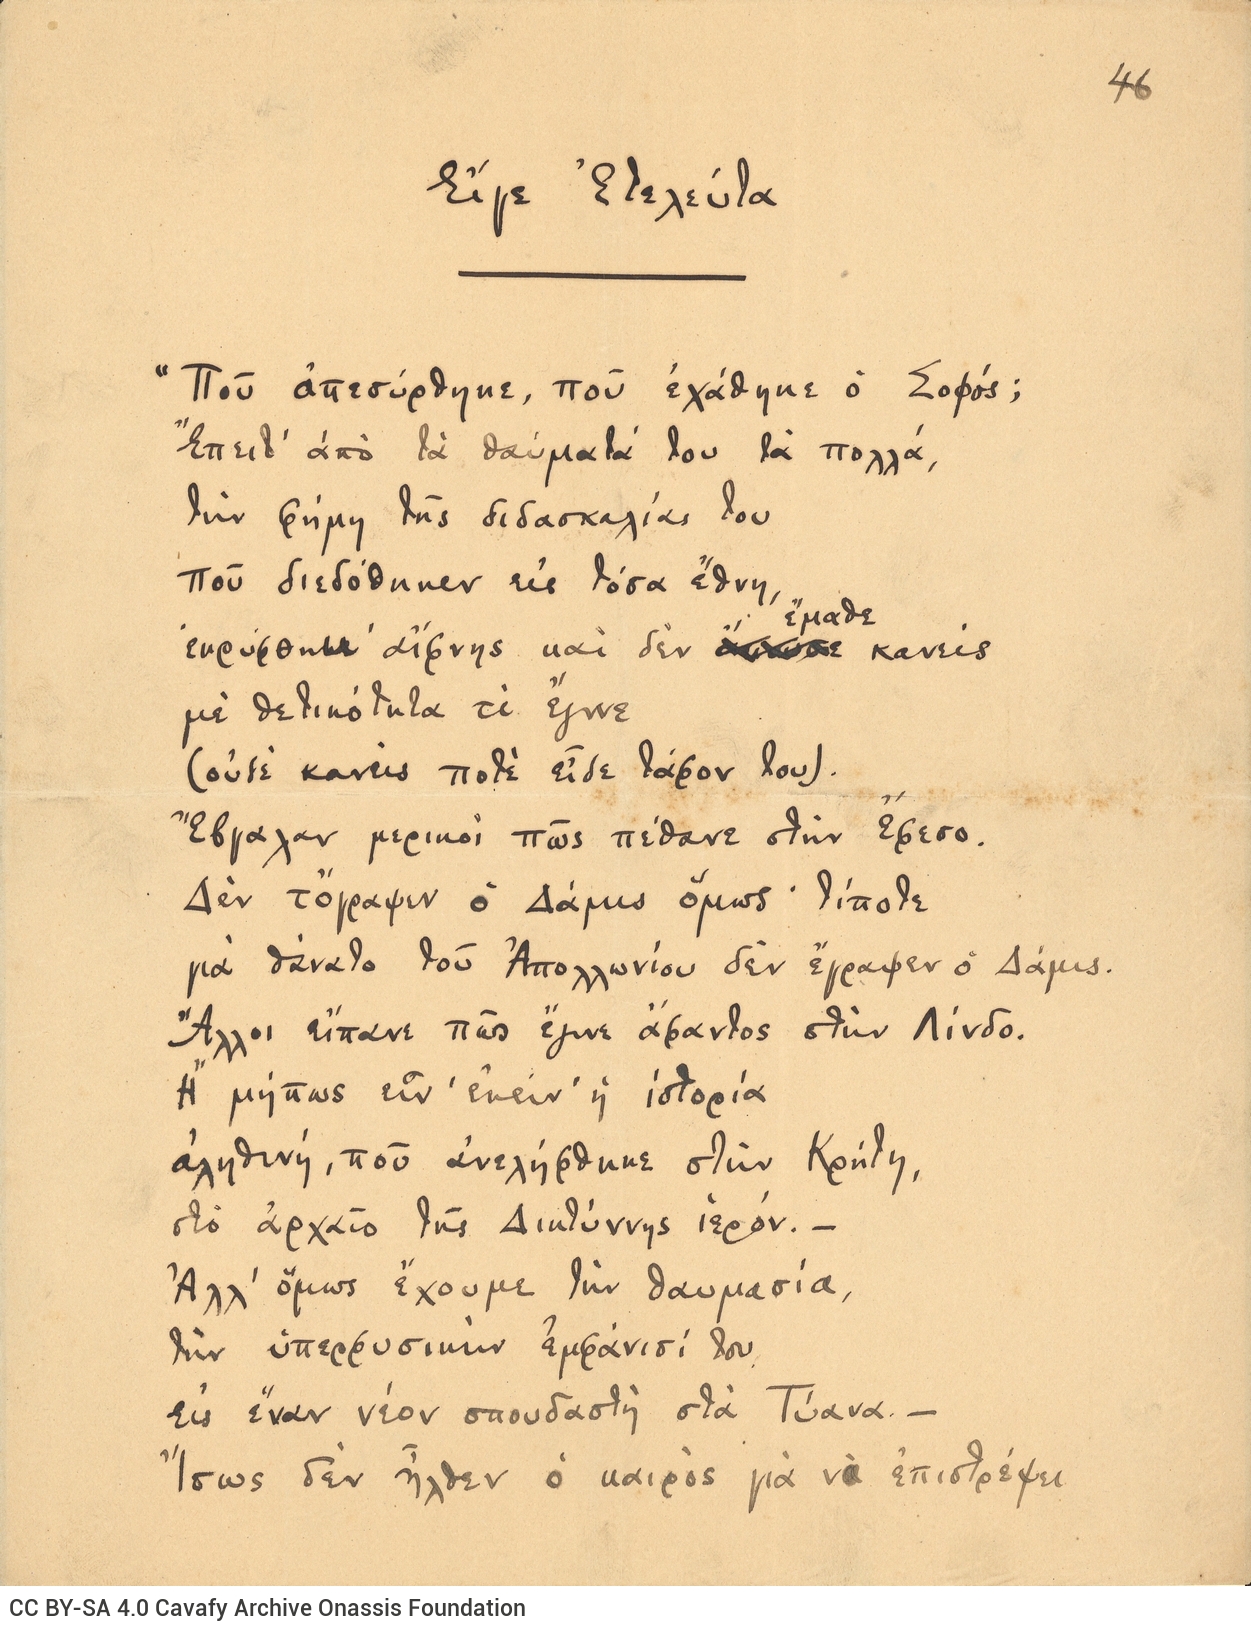 46
Εἴγε Ἐτελεύτα
“Ποῦ ἀπεσύρθηκε, ποῦ ἐχάθηκε ὁ Σοφός;
Ἔπειτ' ἀπὸ τὰ θαύματά του τὰ πολλά,
τὴν φήμη τῆς διδασκαλίας του
ποῦ διεδόθηκεν εἰς τόσα ἔθνη,
ἔμαθε
ἐκρύφθηκ' αἴφνης καὶ δὲν κανείς
μὲ θετικότητα τί ἔγινε
(οὐδὲ κανεὶς ποτὲ εἶδε τάφον του).
Ἔβγαλαν μερικοὶ πῶς πέθανε στὴν Ἔφεσο.
Δὲν τὄγραψεν ὁ Δάμις ὅμως· τίποτε
γιὰ θάνατο τοῦ Ἀπολλωνίου δὲν ἔγραψεν ὁ Δάμις.
Ἄλλοι εἴπανε πῶς ἔγινε ἄφαντος στὴν Λίνδο.
Ἢ μήπως εἶν' ἐκείν' ἡ ἱστορία
ἀληθινή, ποῦ ἀνελήφθηκε στὴν Κρήτη,
στὸ ἀρχαῖο τῆς Δικτύννης ἱερόν. —
Ἀλλ' ὅμως ἔχουμε τὴν θαυμασία,
τὴν ὑπερφυσικὴν ἐμφάνισί του
εἰς ἕναν νέον σπουδαστὴ στὰ Τύανα. —
Ἴσως δὲν ἦλθεν ὁ καιρὸς γιὰ νὰ ἐπιστρέψει
CC BY-SA 4.0 Cavafy Archive Onassis Foundation